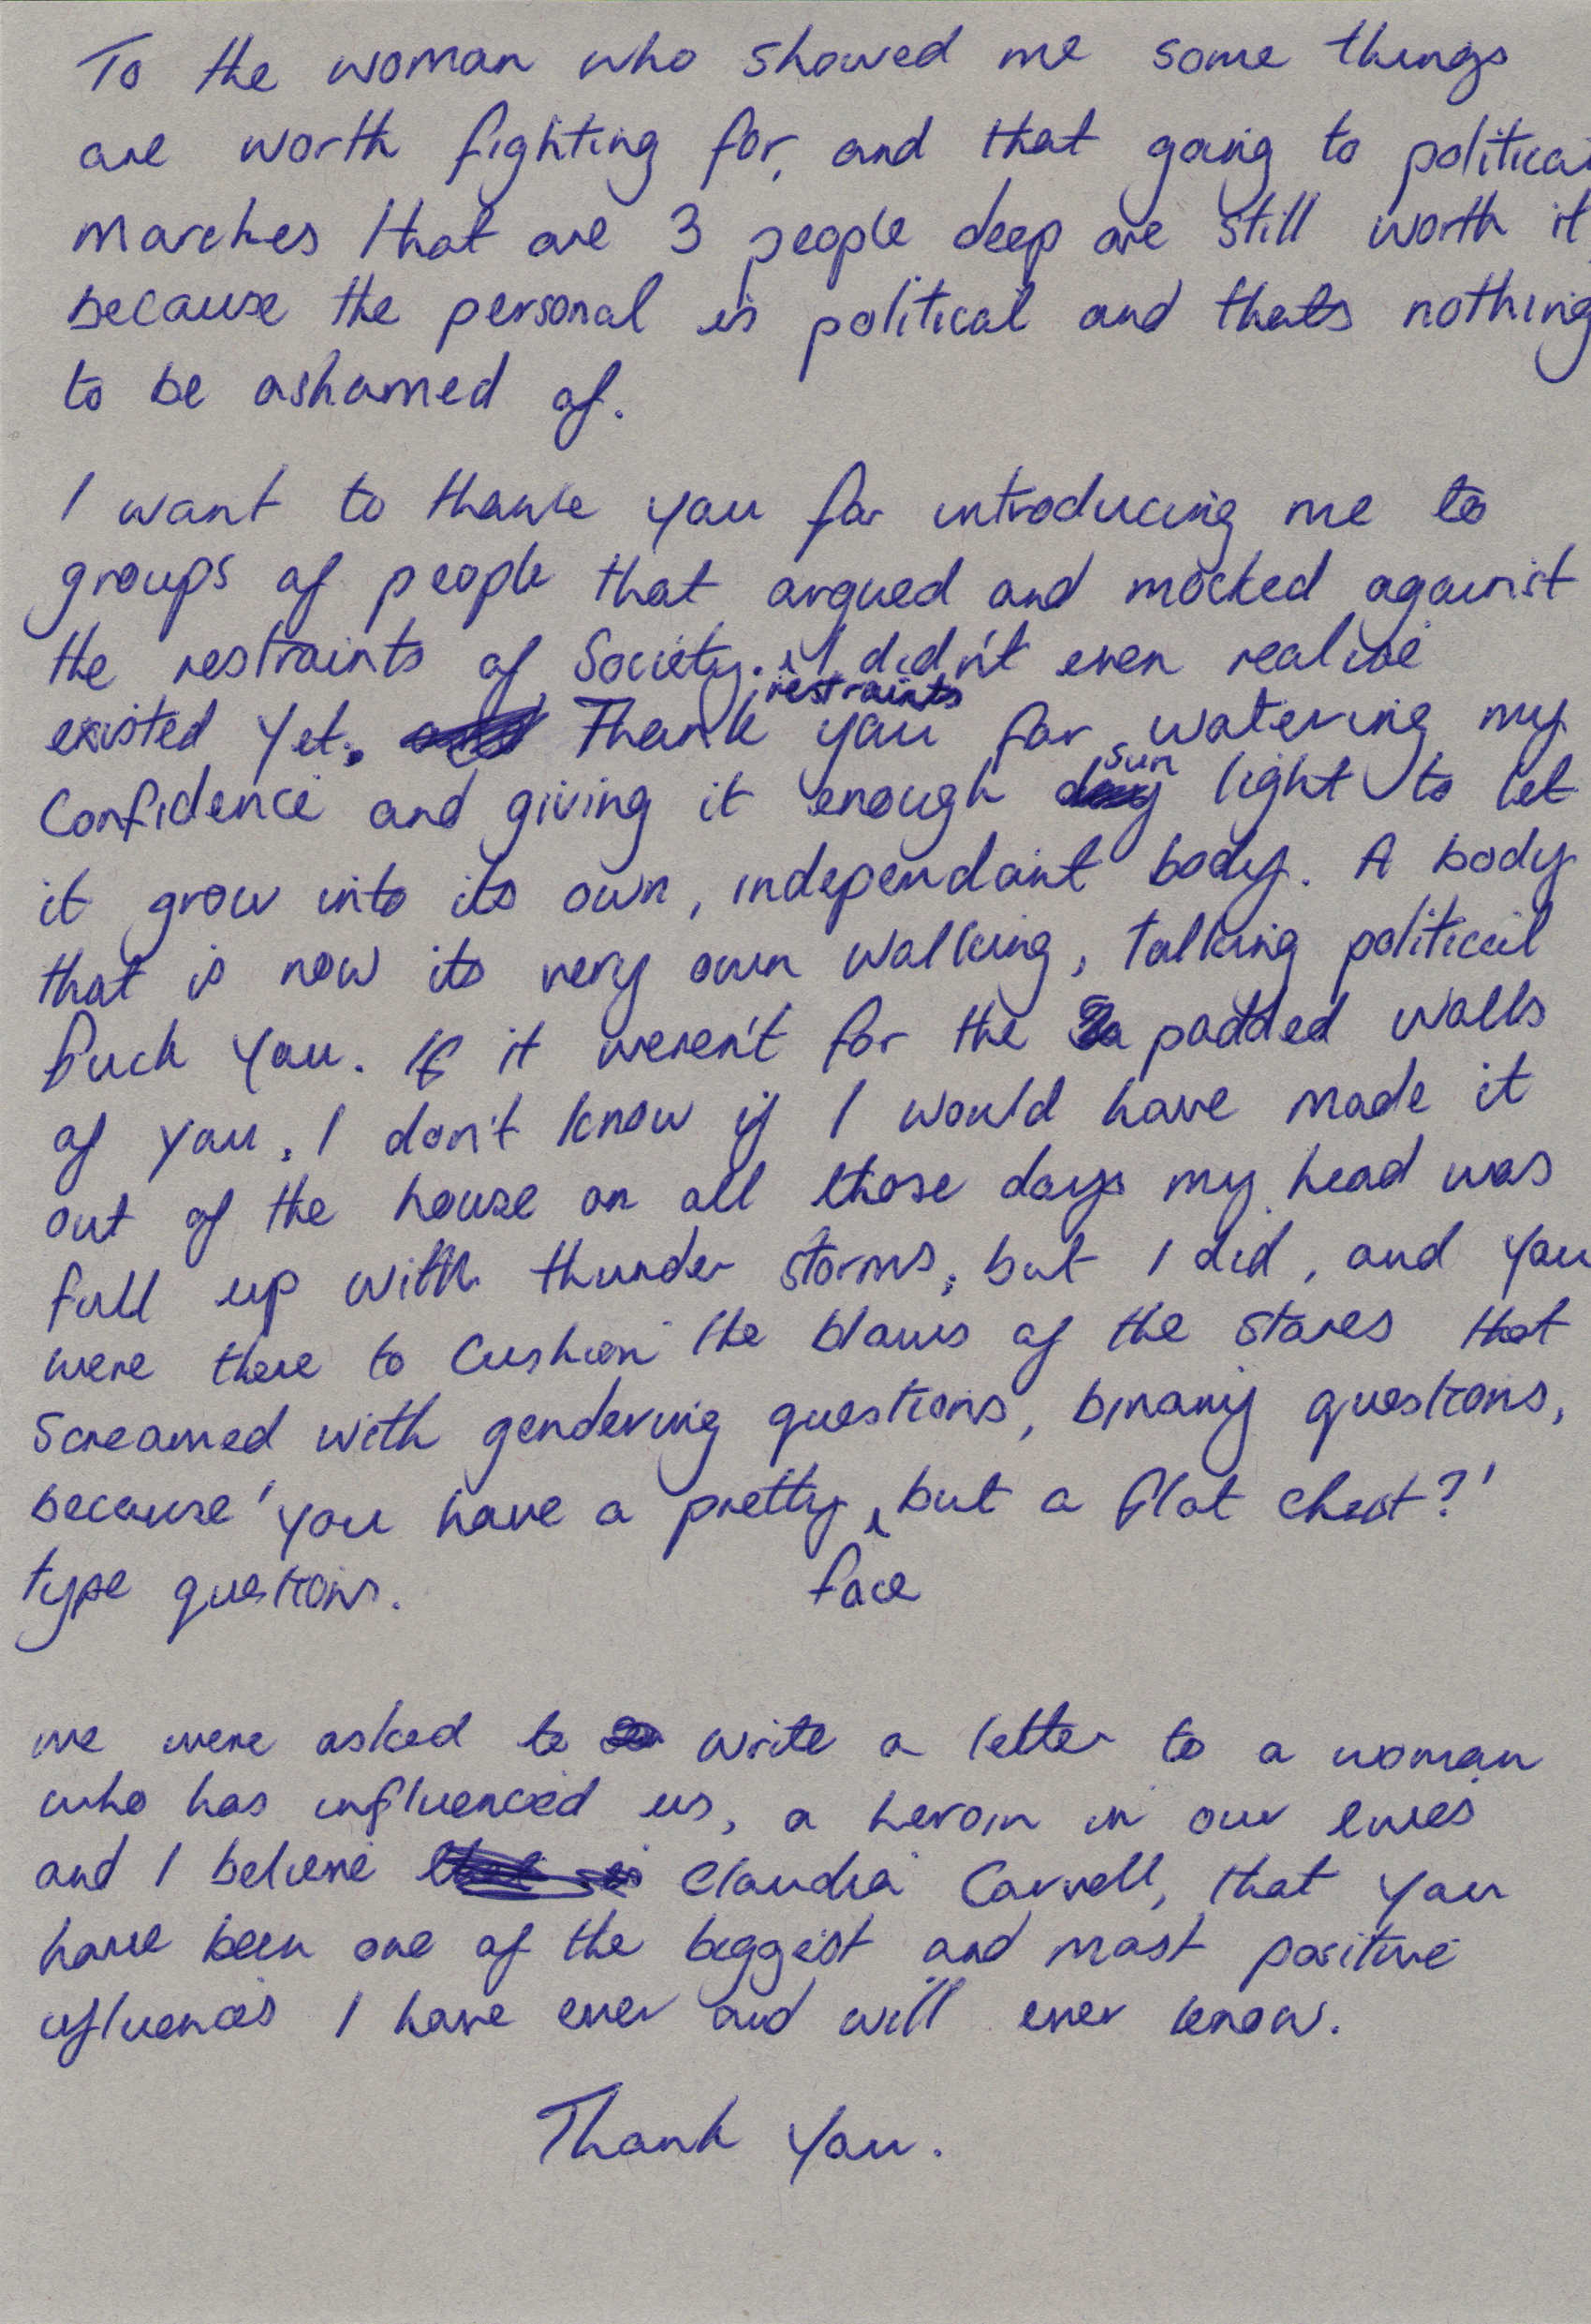 To the woman who showed me some things
are worth fighting for, and that going to political
marches that are 3 people deep are still worth it,
because the personal is political and thats nothing
to be ashamed of.
I want to thank you for introducing me to
groups of people that argued and mocked against
the restraints of Society. restraints I didn't even realise
existed yet. Thank you for watering my
Confidence and giving it enough sun light to let
it grow into its own, independant body. A body
that is now its very own walking, talking political
fuck you. If it weren't for the padded walls
of you, I don't know if I would have made it
out of the house on all those days my head was
full up with thunder storms, but I did, and you
were there to Cushion the blows of the stares that
Screamed with gendering questions, binary questions,
because 'you have a pretty face, but a flat chest?'
type questions.
we were asked to write a letter to a woman
who has influenced us, a heroin in our lives
and I believe Claudia Carvell, that you
have been one of the biggest and most positive
ifluences I have ever and will ever know.
Thank You.